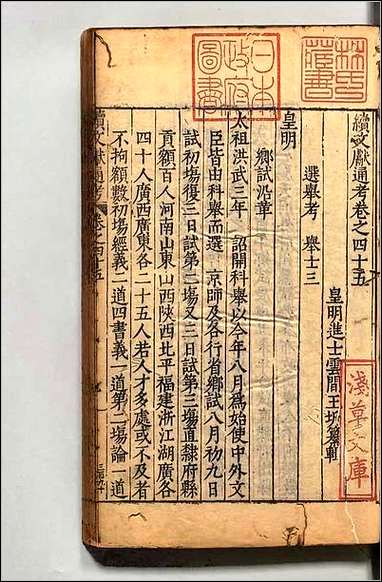 續文獻通考卷之四十五
皇明進士雲間王圻纂輯
選舉考 舉士三
皇明
鄉試沿革
太祖洪武三年 詔開科舉以今年八月為始使中外文
臣皆由科舉而選 京師及各行省鄉試八月初九日
試初場復三日試第二場又三日試第三場直隸府縣
貢額百人河南山東山西陝西北平福建浙江湖廣各
四十人廣西廣東各二十五人若人才多處或不及者
不拘額數初場經義二道四書義一道第二場論一道
續文獻通考
林氏藏書
日本政府圖書
淺草文庫